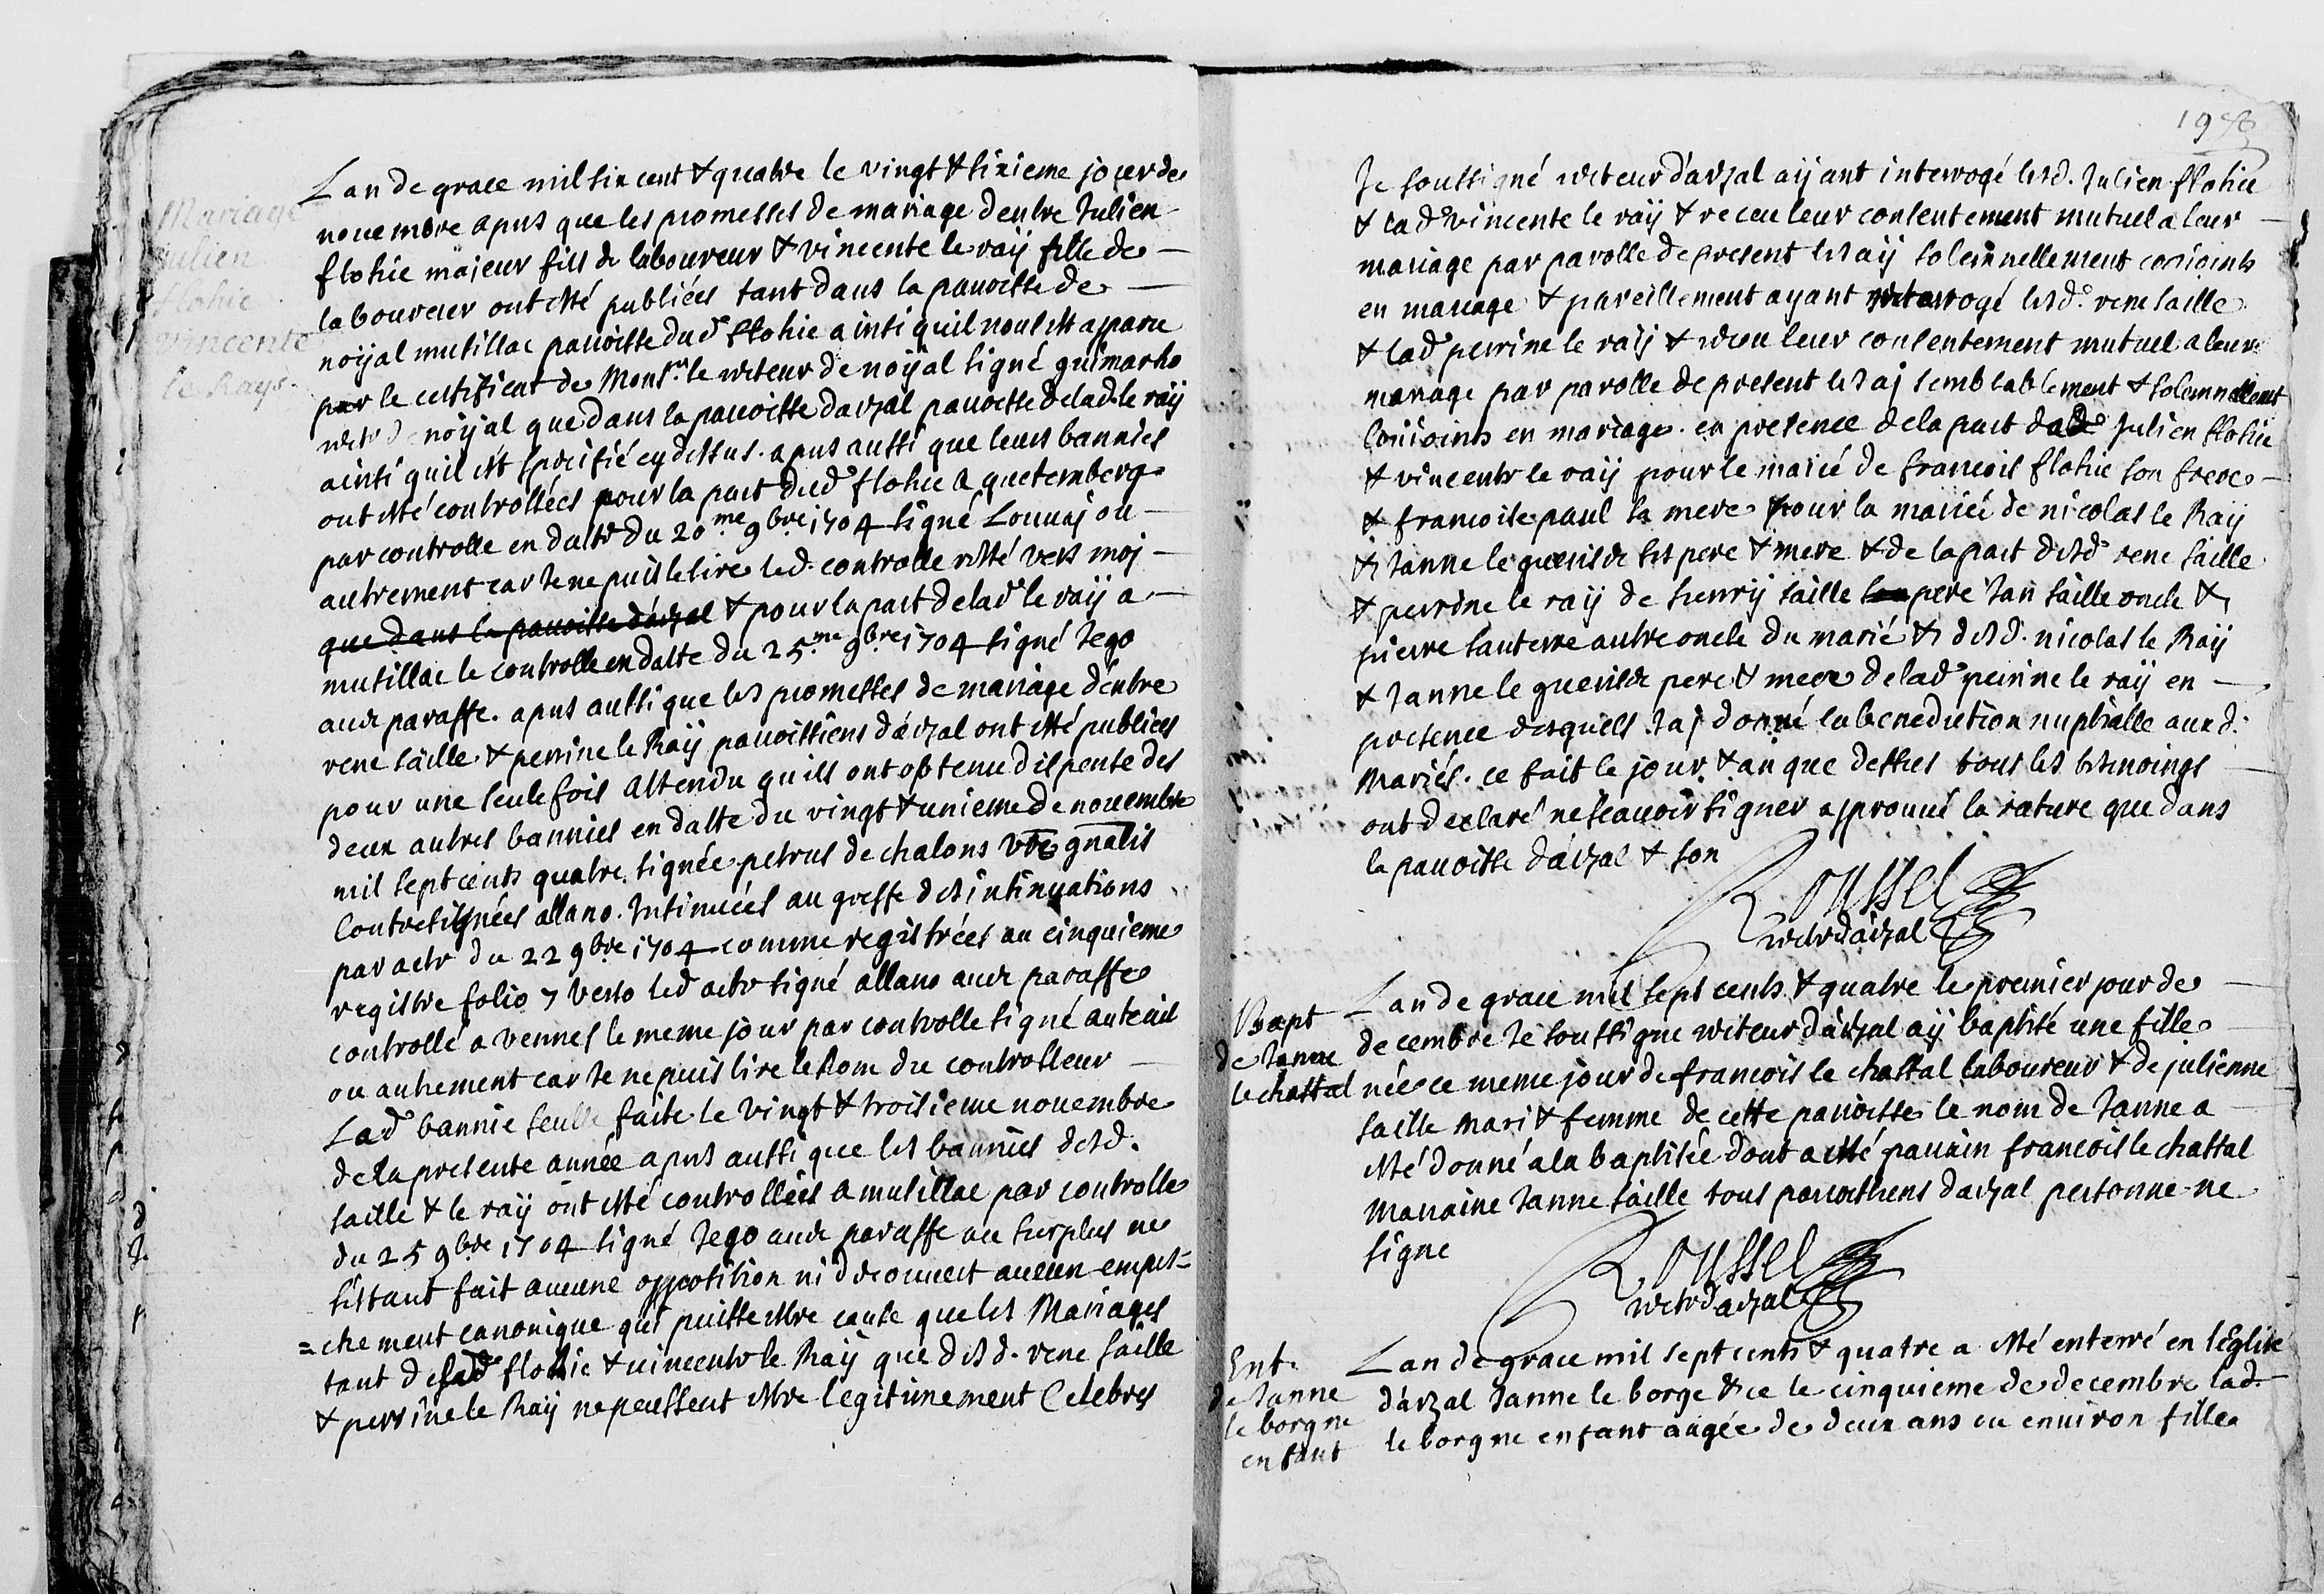 Mariage
julien
flohic
vincente
le Ray
Lan de grace mil six cent & quatre le vingt & sixieme jour de
nouembre apres que les promesses de mariage dentre Julien
flohic majeur fils de laboureur & vincente le raÿ fille de
laboureur ont esté publiées tant dans la parroisse de
noÿal musillac parroisse dud flohic ainsi quil nous est apparu
par le certificat de Monsr. le recteur de noÿal signé guimarho
rectr de noÿal que dans la parroisse darzal parroisse de lad. le raÿ
ainsi quil est specifié cy dessus. apres aussi que leurs bannies
ont esté controllées pour la part dud flohic a questemberg
par controlle en datte du 20me 9bre 1704 signé Louuaj ou
autrement car Je ne puis le lire led. controlle resté vers moj
que dans la parroisse dárzal & pour la part de lad le raÿ a
musillac le controlle en datte du 25me 9bre 1704 signé Jego
auec paraffe. apres aussi que les promesses de mariage déntre
rene saille & perrine le Raÿ parroissiens dárzal ont esté publiées
pour une seule fois attendu quils ont obtenu dispense des
deux autres bannies en datte du vingt & unieme de nouembre
mil sept cents quatre. signée petrus de chalons gnalis
Contresignées allano. Insinuées au greffe des insinuations
par acte du 22 9bre 1704 comme registrées au cinquieme
registre folio 7 verso led acte signé allano auec paraffe
controllé a vennes le meme jour par controlle signé auteuil
ou autrement car Je ne puis lire le Nom du controlleur
Lad bannie seulle faite le vingt & troisieme nouembre
de la presente année apres aussi que les bannies desd.
saille & le raÿ ont esté controllées a musillac par controlle
du 25 9bre 1704 signé Jego auec paraffe au surplus ne
sestant fait aucune opposition ni decouuert aucun empes=
=chement canonique qui puisse estre cause que les Mariages
tant desd flohic & uincente le Raÿ que desd. rene saille
& perrine le Raÿ ne peussent estre legitimement Celebres
Je soussigné recteur dárzal aÿant interrogé lesd. Julien flohic
& lad vincente le raÿ & receu leur consentement mutuel a leur
mariage par parolle de present les aÿ solemnellement conjoints
en mariage & pareillement ayant interrogé lesd. rene saille
& lad perrine le raÿ & receu leur consentement mutuel a leur
mariage par parolle de present les aj semblablement & solemnellemt
Conjoints en mariage. en presence de la part desd Julien flohic
& vincente le raÿ pour le marié de francois flohic son frere
& francoise paul sa mere pour la mariée de nicolas le Raÿ
& Janne le guenisde ses pere & mere & de la part desd rene saille
& perrine le raÿ de henrÿ saille son pere Jan saille oncle &
pierre santerre autre oncle du marié & desd. nicolas le Raÿ
& Janne le guenisde pere & mere de lad perrine le raÿ en
presence desquels Jaj donné la benediction nuptialle auxd.
Mariés. ce fait le jour & an que dessus tous les tesmoings
ont declaré ne scauoir signer approuué la rature que dans
la parroisse dárzal & son
Roussel
rectr dárzal
Bapt
de Janne
le chattal
Lan de grace mil sept cents & quatre le premier jour de
decembre Je soussigne recteur dárzal aÿ baptisé une fille
née ce meme jour de francois le chattal laboureur & de julienne
saille mari & femme de cette parroisse le nom de Janne a
esté donné a la baptisée dont a esté parrain francois le chattal
Marraine Janne saille tous parroissiens darzal personne ne
signe
Roussel
rectr dárzal
Ent.
de Janne
le borgne
enfant
Lan de grace mil sept cents & quatre a esté enterré en lEglise
dárzal Janne le borge & ce le cinquieme de decembre lad.
le borgne enfant aagée de deux ans ou enuiron fille